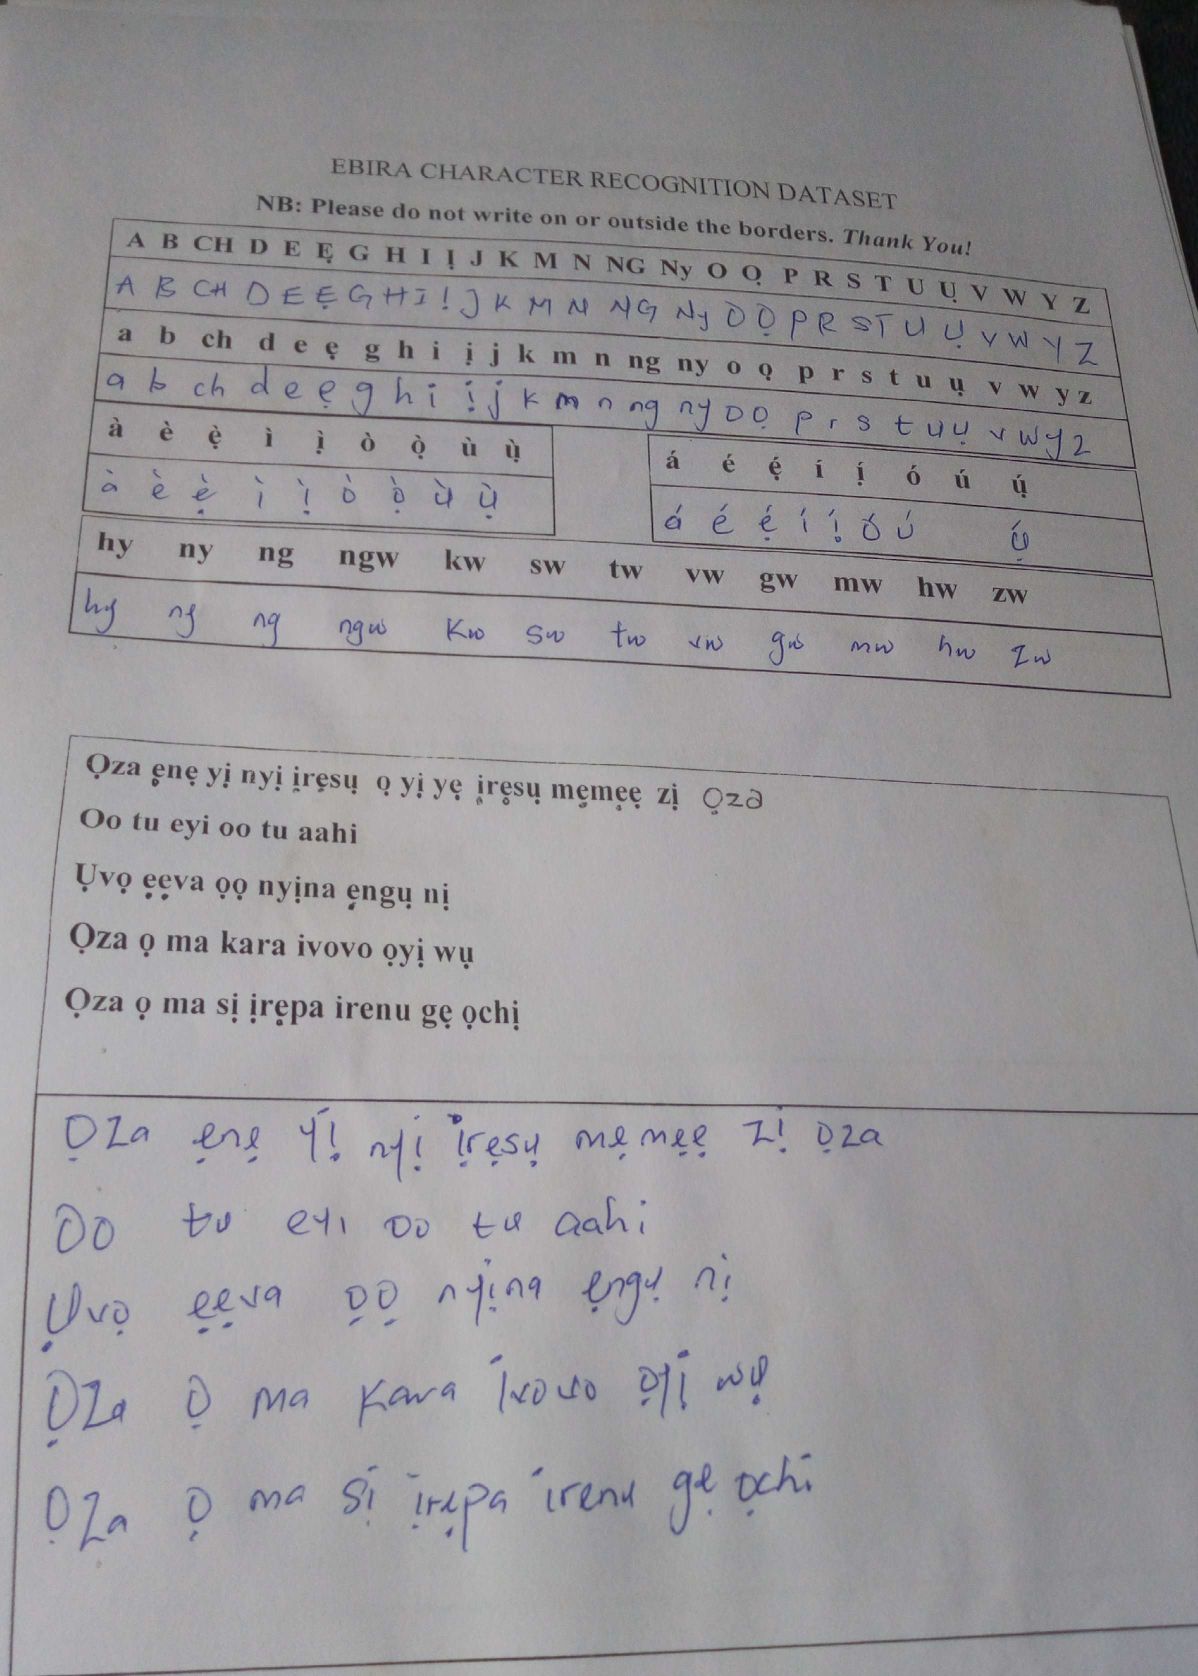 EBIRA CHARACTER RECOGNITION DATASET
NB: Please do not write on or outside the borders. Thank You!
A B CH D E Ẹ G H I Ị J K M N NG Ny O Ọ P R S T U Ụ V W Y Z
A B CH D E Ẹ G H I Ị J K M N NG Ny O Ọ P R S T U Ụ V W Y Z
a b ch d e ẹ g h i ị j k m n ng ny o ọ p r s t u ụ v w y z
a b ch d e ẹ g h i ị j k m n ng ny o ọ p r s t u ụ v w y z
à è ẹ̀ ì ị̀ ò ọ̀ ù ụ̀
à è ẹ̀ ì ị̀ ò ọ̀ ù ụ̀
á é ẹ́ í ị́ ó ú ụ́
á é ẹ́ í ị́ ó ú ụ́
hy ny ng ngw kw sw tw vw gw mw hw zw
hy ny ng ngw kw sw tw vw gw mw hw zw
Ọza ẹnẹ yị nyị ịrẹsụ ọ yị yẹ ịrẹsụ mẹmẹẹ zị ọza
Oo tu eyi oo tu aahi
Ụvọ ẹẹva ọọ nyịna ẹngụ nị
Ọza ọ ma kara ivovo ọyị wụ
Ọza ọ ma sị ịrẹpa irenu gẹ ọchị
Ọza ẹnẹ yị nyị ịrẹsụ mẹmẹẹ zị ọza
Oo tu eyi oo tu aahi
Ụvọ ẹẹva ọọ nyịna ẹngụ nị
Ọza ọ ma kara ivovo ọyị wụ
Ọza ọ ma sị ịrẹpa irenu gẹ ọchi